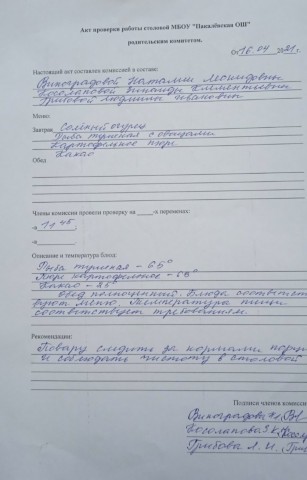 Акт проверки работы столовой МБОУ "Пакалёвская ОШ"
родительским комитетом.
«16.04 2021г.
Настоящий акт составлен комиссией в составе:
Виноградовой Наталии Леонидовны
Косолаповой Зинаиды Клементьевны
Грибовой Людмилы Ивановны
Меню:
Завтрак Солёный огурец
Рыба тушеная с овощами
Картофельное пюре
Какао
Обед
Члены комиссии провели проверку на ____к перемене:
«11 45.
«
Описание и температура блюд:
Рыба тушеная - 65°
Пюре картофельное - 68°
Какао -
Обед полноценный. Блюда соответст-
вуют меню. Температура пищи
соответствует требованиям.
Рекомендации:
Повару следить за нормами порци
и соблюдать чистоту в столовой
Подписи членов комисси
Виноградова Н.Л.
Косолапова З.К.
Грибова Л.И.